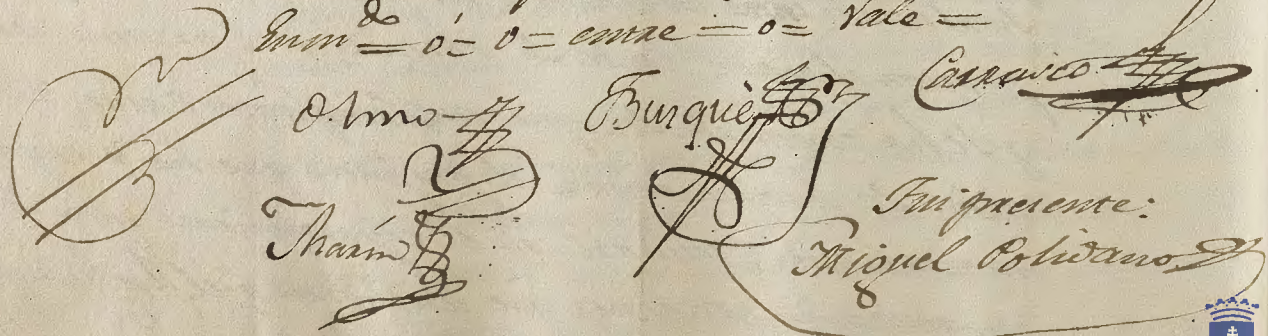 Enm.do = ó = o = entre = o = Vale =
Olmo Burguè Carrasco
Marin
Fui presente:
Miguel Polidano